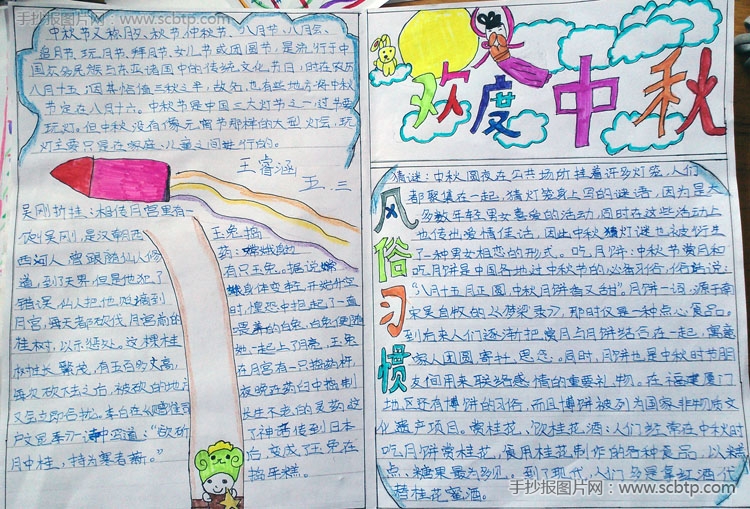 手抄报图片网：www.scbtp.com
中秋节又称月夕、秋节、仲秋节、八月节、八月会、
追月节、玩月节、拜月节、女儿节或团圆节，是流行于中
国众多民族与东亚诸国中的传统文化节日，时在农历
八月十五；因其恰值三秋之半，故名，也有些地方将中秋
节定在八月十六。中秋节是中国三大灯节之一，过节要
玩灯。但中秋没有像元宵节那样的大型灯会，玩
灯主要只是在家庭、儿童之间进行的。
王睿涵
五.三
吴刚折桂：相传月宫里有一
伙吴刚，是汉朝西
西河人，曾跟随仙人修
道，到天界，但是他犯了
错误，仙人把他贬谪到
月宫，每天都砍伐月宫前的
桂树，以示惩处。这棵桂
树生长繁茂，有五百多丈高，
每次砍下去之后，被砍的地方
又立即合拢。李白在
中写道："欲斫
月中桂，持为寒者薪。"
玉兔捣
药：嫦娥身边
有只玉兔。据说嫦
娥身体变轻，开始升空
时，惶恐中抱起了一直
喂养的白兔。白兔便随
她一起上了月亮。玉兔
在月宫有一只捣药杵，
夜晚在药臼中捣制
长生不老的灵药。这
个神话传到日本
后，变成了玉兔在
捣年糕。
欢度中秋
风俗习惯
猜谜：中秋圆夜在公共场所挂着许多灯笼，人们
都聚集在一起，猜灯笼身上写的谜语，因为是大
多数年轻男女喜爱的活动，同时在这些活动上
也传出爱情佳话，因此中秋猜灯谜也被衍生
了一种男女相恋的形式。吃月饼：中秋节赏月和
吃月饼是中国各地过中秋节的必备习俗，俗话说：
"八月十五月正圆，中秋月饼香又甜"。月饼一词，源于南
宋吴自牧的《梦粱录》，那时仅是一种点心食品。
到后来人们逐渐把赏月与月饼结合在一起，寓意
家人团圆，寄托思念。同时，月饼也是中秋时节朋
友间用来联络感情的重要礼物。在福建厦门
地区还有博饼的习俗，而且博饼被列为国家非物质文
化遗产项目。赏桂花、饮桂花酒：人们经常在中秋时
吃月饼赏桂花，食用桂花制作的各种食品，以糕
点、糖果最为多见。到了现代，人们多是拿红酒代
替桂花蜜酒。
手抄报图片网：www.scbtp.com